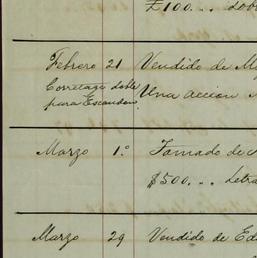 £100... dob
Febrero 21 Vendido de M
Corretage doble
para Escandon. Una accion
Marzo 1.º Tomado de
$500... Letra
Marzo 29 Vendido de Ed